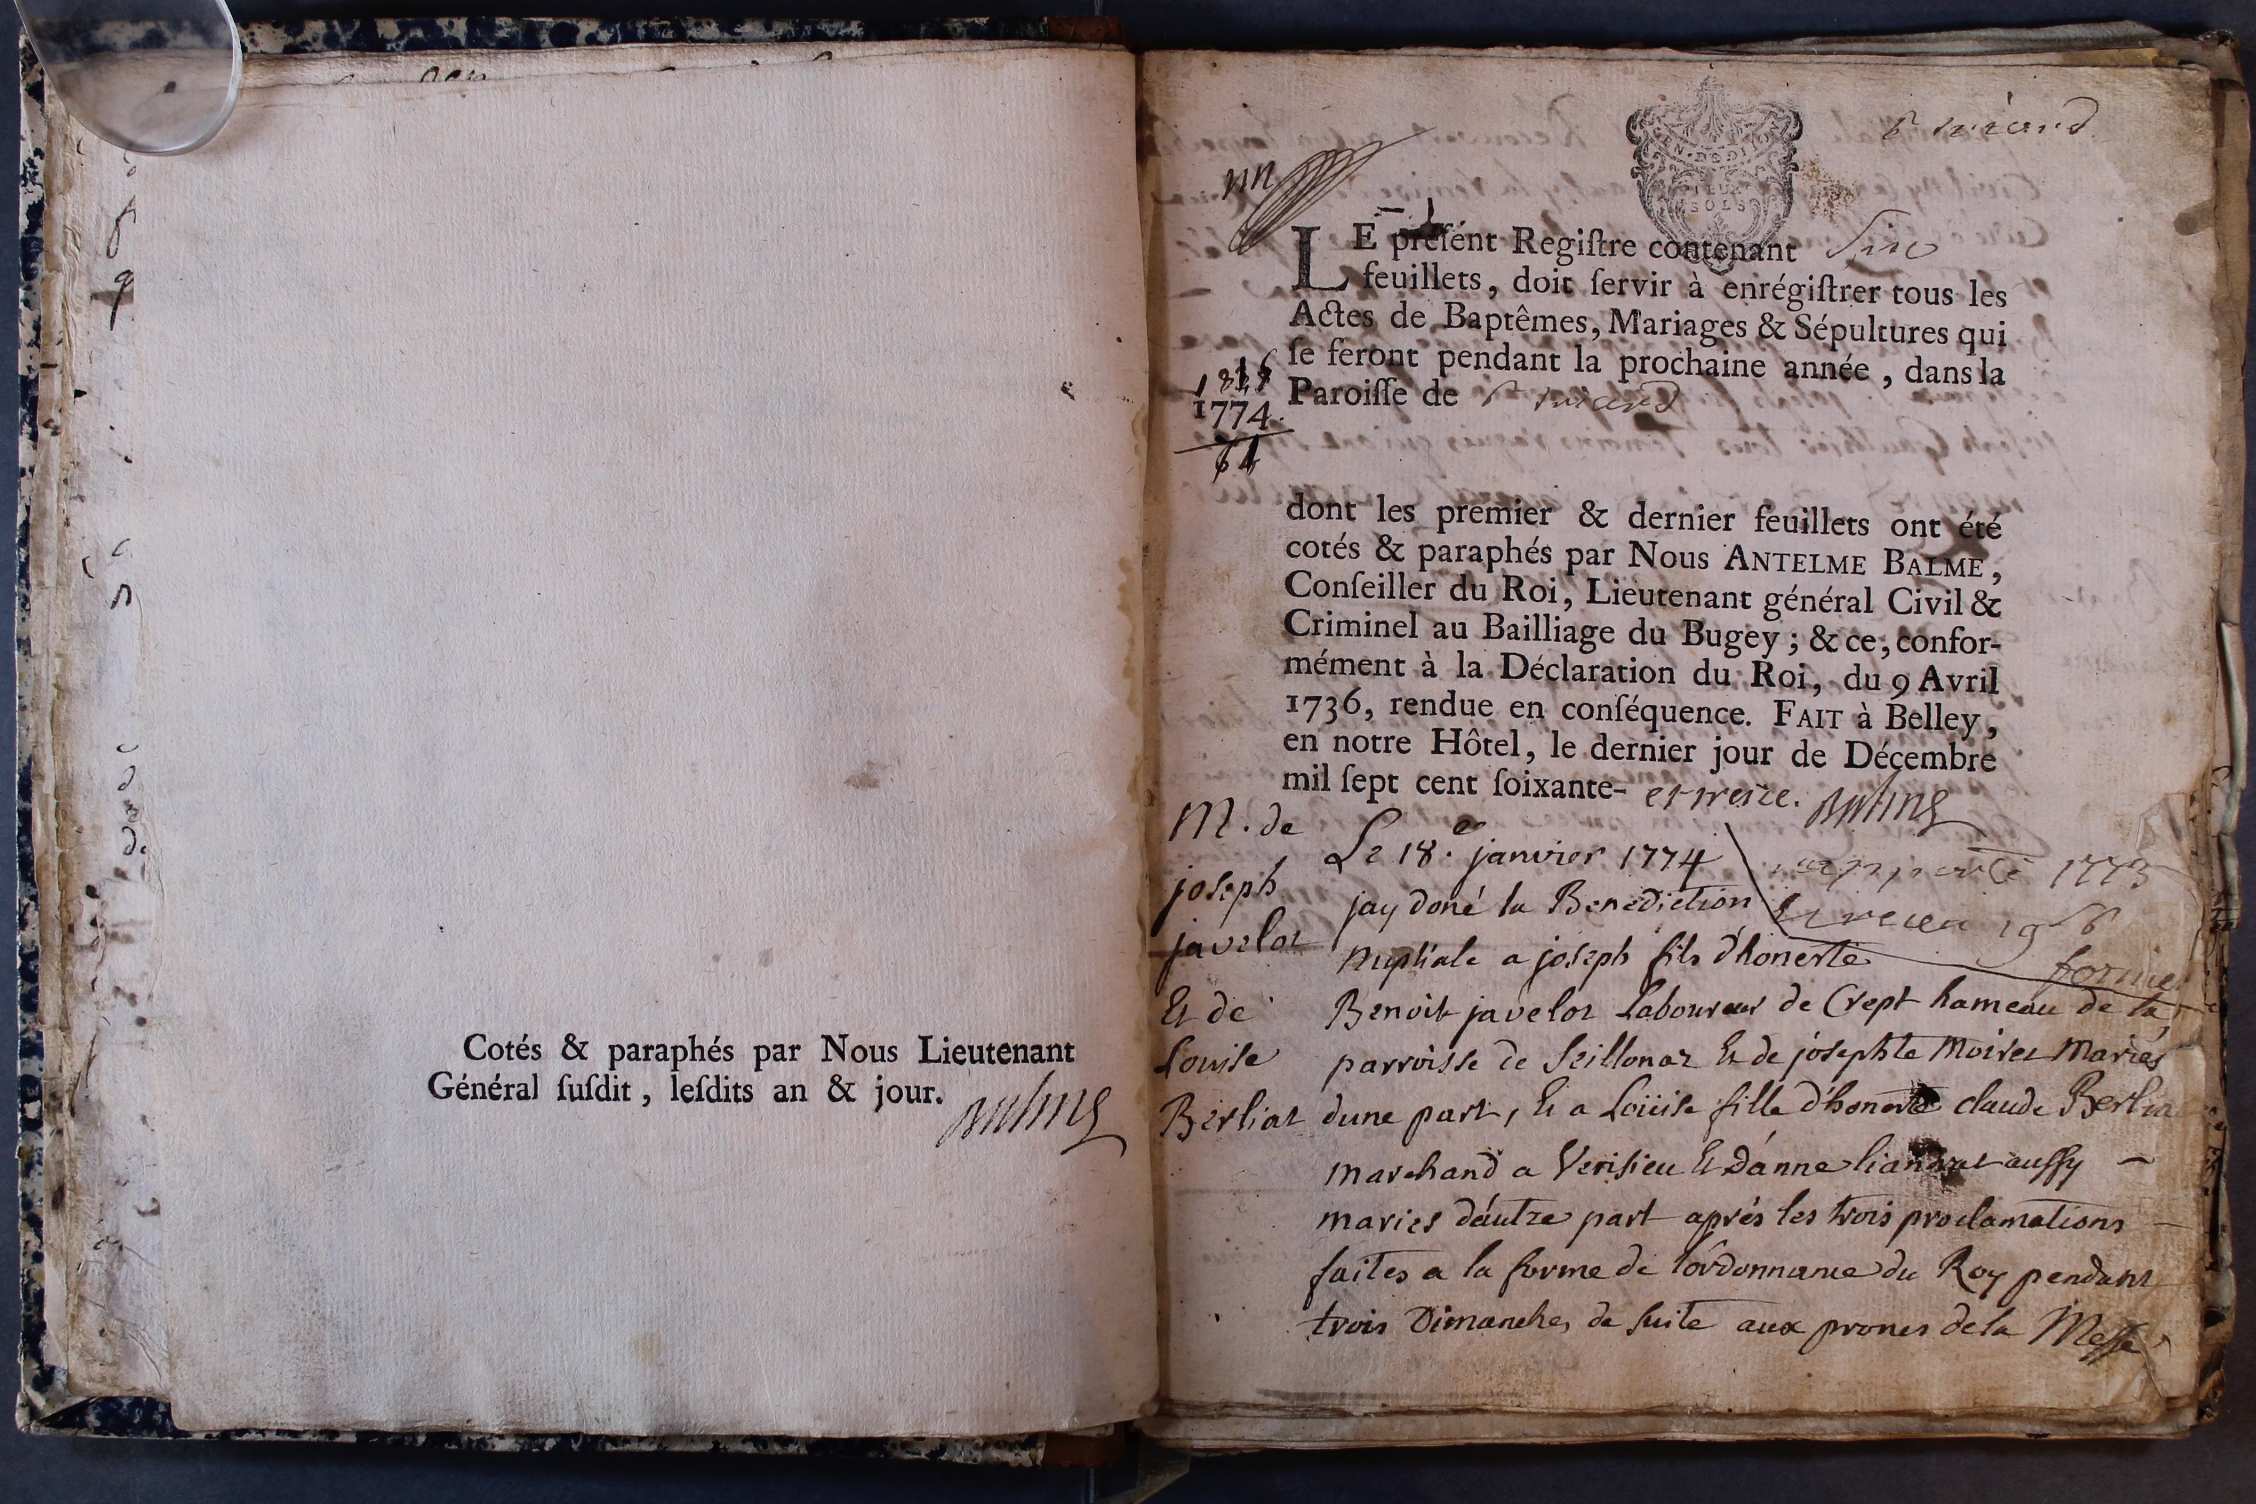 Cotés & paraphés par Nous Lieutenant
Général ſuſdit, leſdits an & jour.
Balme
GEN. DE DIJON
DEUX
SOLS
LE préſént Regiſtre contenant Six
feuillets, doit ſervir à enrégiſtrer tous les
Actes de Baptêmes, Mariages & Sépultures qui
ſe feront pendant la prochaine année, dans la
Paroiſſe de
1774
61
dont les premier & dernier feuillets ont été
cotés & paraphés par Nous ANTELME BALME,
Conſeiller du Roi, Lieutenant général Civil &
Criminel au Bailliage du Bugey; & ce, confor-
mément à la Déclaration du Roi, du 9 Avril
1736, rendue en conſéquence. FAIT à Belley,
en notre Hôtel, le dernier jour de Décembre
mil ſept cent ſoixante- et treize. Balme
M. de
joseph
javelot
Et de
Louise
Berliat
Le 18.e janvier 1774
jay doné la Benediction
nuptiale a joseph fils d'honeste
Benoit javelot Laboureur de Crept hameau de la
parroisse de Seillonaz Et de josephte Moiret Mariés
dune part, Et a Loüise fille d'honeste claude Berliat
marchand a Verisieu Et d'anne liandrat aussy -
maries d'autre part aprés les trois proclamations -
faites a la forme de lordonnance du Roy pendant
trois Dimanches de suite aux prones de la Messe
1773